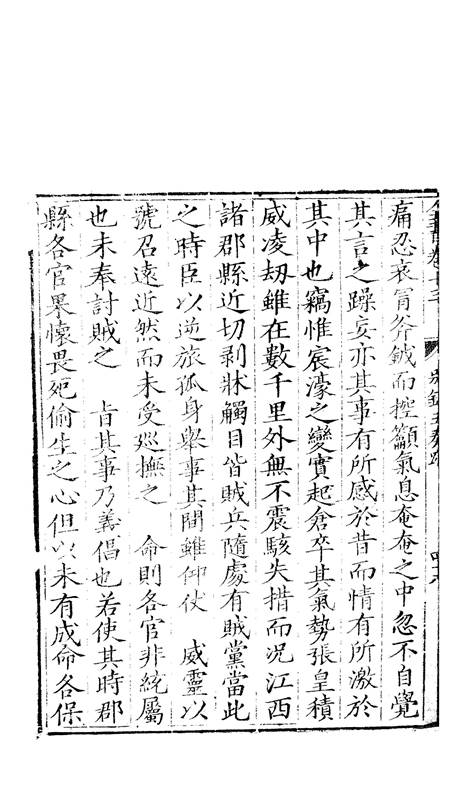 痛忍哀冐斧鉞而控籲氣息奄奄之中忽不自覺
其言之躁妄亦其事有所感於昔而情有所激於
其中也竊惟宸濠之變實起倉卒其氣勢張皇積
威凌刼雖在數千里外無不震駭失措而況江西
諸郡縣近切剥牀觸目皆賊兵隨處有賊黨當此
之時臣以逆旅孤身舉事其間雖仰仗 威靈以
號召遠近然而未受廵撫之 命則各官非統屬
也未奉討賊之 旨其事乃義倡也若使其時郡
縣各官果懷畏死偷生之心但以未有成命各保